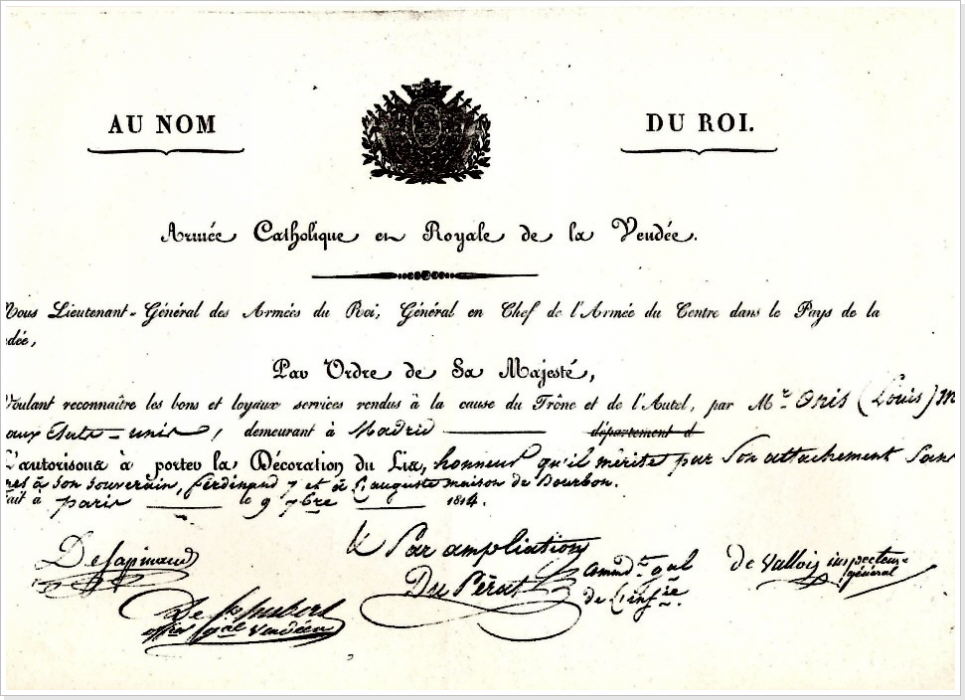 AU NOM DU ROI.
Armée Catholique et Royale de la Vendée.
Nous Lieutenant-Général des Armées du Roi, Général en Chef de l'Armée du Centre dans le Pays de la
dée,
Par Ordre de Sa Majesté,
Voulant reconnaître les bons et loyaux services rendus à la cause du Trône et de l'Autel, par Mr Onis (Louis) m
aux Etats-unis, demeurant à Madrid département d
L'autorisons à porter la Décoration du Lis, honneur qu'il mérite par son attachement sans
nes à son souverain, ferdinand 7 et à l'auguste maison de Bourbon.
Fait à paris le 9 7bre 1814.
DeSapinaud
Par ampliation
Du Pérat
de Vallois inspecteur
général
de St hubert
gal vendéen